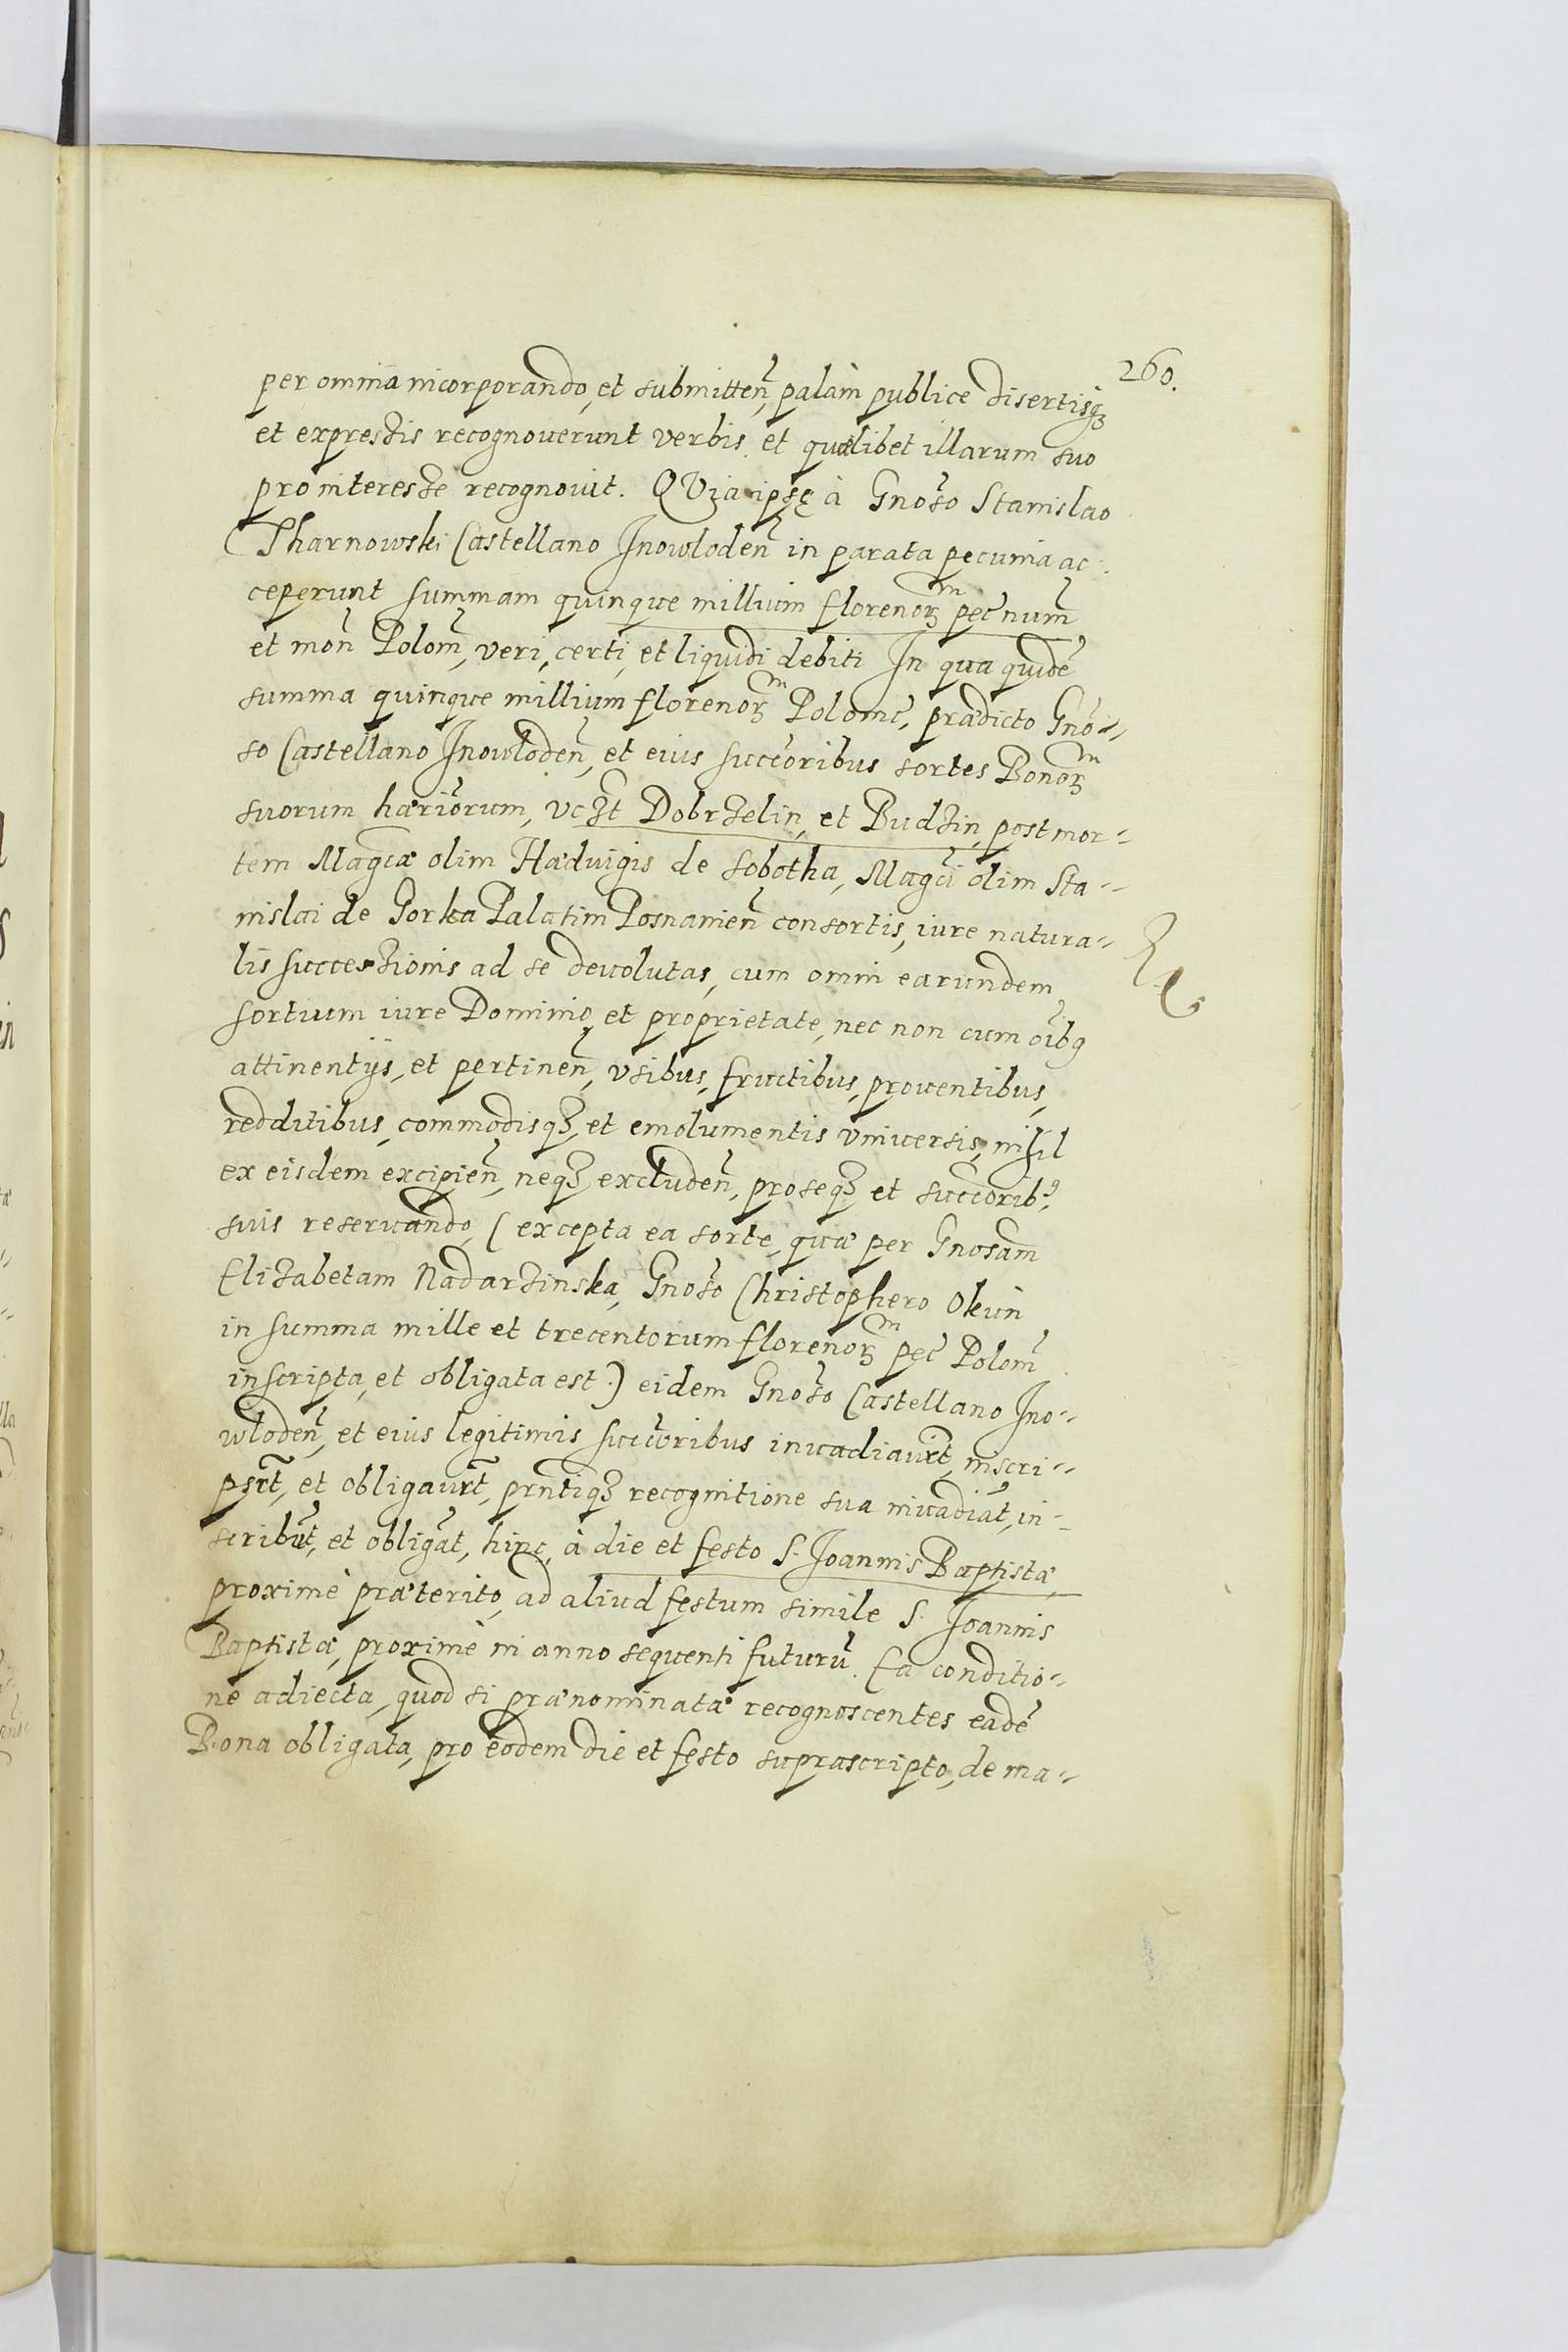 260.
per omnia incorporando, et submitteñ, palàm publice disertisqꝫ
et expressis recognouerunt verbis, et quælibet illarum suo
pro interesse recognouit. QVia ipsę à Gnoso Stanislao
Tharnowski Castellano Inowlodeñ in parata pecunia ac-
ceperunt summam quinque millium florenoꝝ pec̃ num̃
et moñ Polom̃, veri, certi, et liquidi debiti In qua quidẽ
summa quinque millium florenoꝝ Polonic̃, prædicto Gno-
so Castellano Inowlodeñ, et eius succc̃oribus sortes Bonoꝝ
suorum hæriorum, vcꝫt Dobrzelin, et Budzin, post mor-
tem Magcæ olim Hæduigis de Sobotha, Magci olim Sta-
nislai de Gorka Palatini Posnanieñ consortis, iure natura-
lis successionis ad se deuolutas, cum omni earundem
sortium iure Dominio, et proprietate, nec non cum oibꝯ
attinentijs, et pertineñ, vsibus, fructibus, prouentibus,
redditibus, commodisqꝫ, et emolumentis vniuersis, nihil
ex eisdem excipieñ, neqꝫ excludeñ, pro seqꝫ et succorib⁹
suis reseruando, (excepta ea sorte, quæ per Gnosam
Elizabetam Nadarzinska, Gnoso Christophero Okun
in summa mille et trecentorum florenoꝝ pec̃ Polom̃
inscripta, et obligata est.) eidem Gnoso Castellano Ino-
wlodeñ, et eius legitimis succoribus inuadiaurt̃, inscri-
psrt̃, et obligaurt̃, prñtiqꝫ recognitione sua inuadiãt, in-
scribũt, et obligãt, hinc, à die et festo S. Joannis Baptistæ,
proximè præterito, ad aliud festum simile S. Joannis
Baptistæ, proximè in anno sequenti futurũ. Ea conditio-
ne adiecta, quod si prænominatæ recognoscentes eadẽ
Bona obligata, pro eodem die et festo suprascripto, de ma-